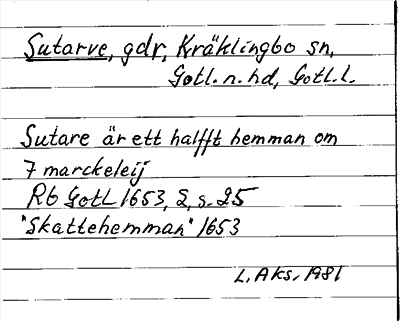 Sutarve, gdr, Kräklingbo sn,
Gotl. n. hd, Gotl. l.
Sutare är ett halfft hemman om
7 marckeleij
Rb Gotl 1653, 2, s. 25
"Skattehemman" 1653
L. Aks, 1981